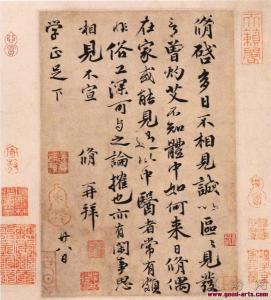 脩啓多日不相見誠以區區見發
言曾灼艾不知體中如何來日脩偶
在家或能見過此中醫者常有頗
非俗工深可與之論搉也亦有閑事思
相見不宣 脩再拜
廿八日
學正足下
www.good-arts.com